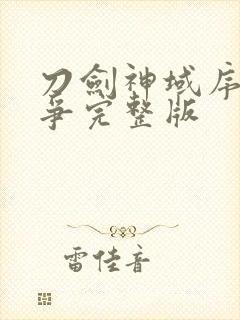 刀劍神域序
爭完整版
雷佳音